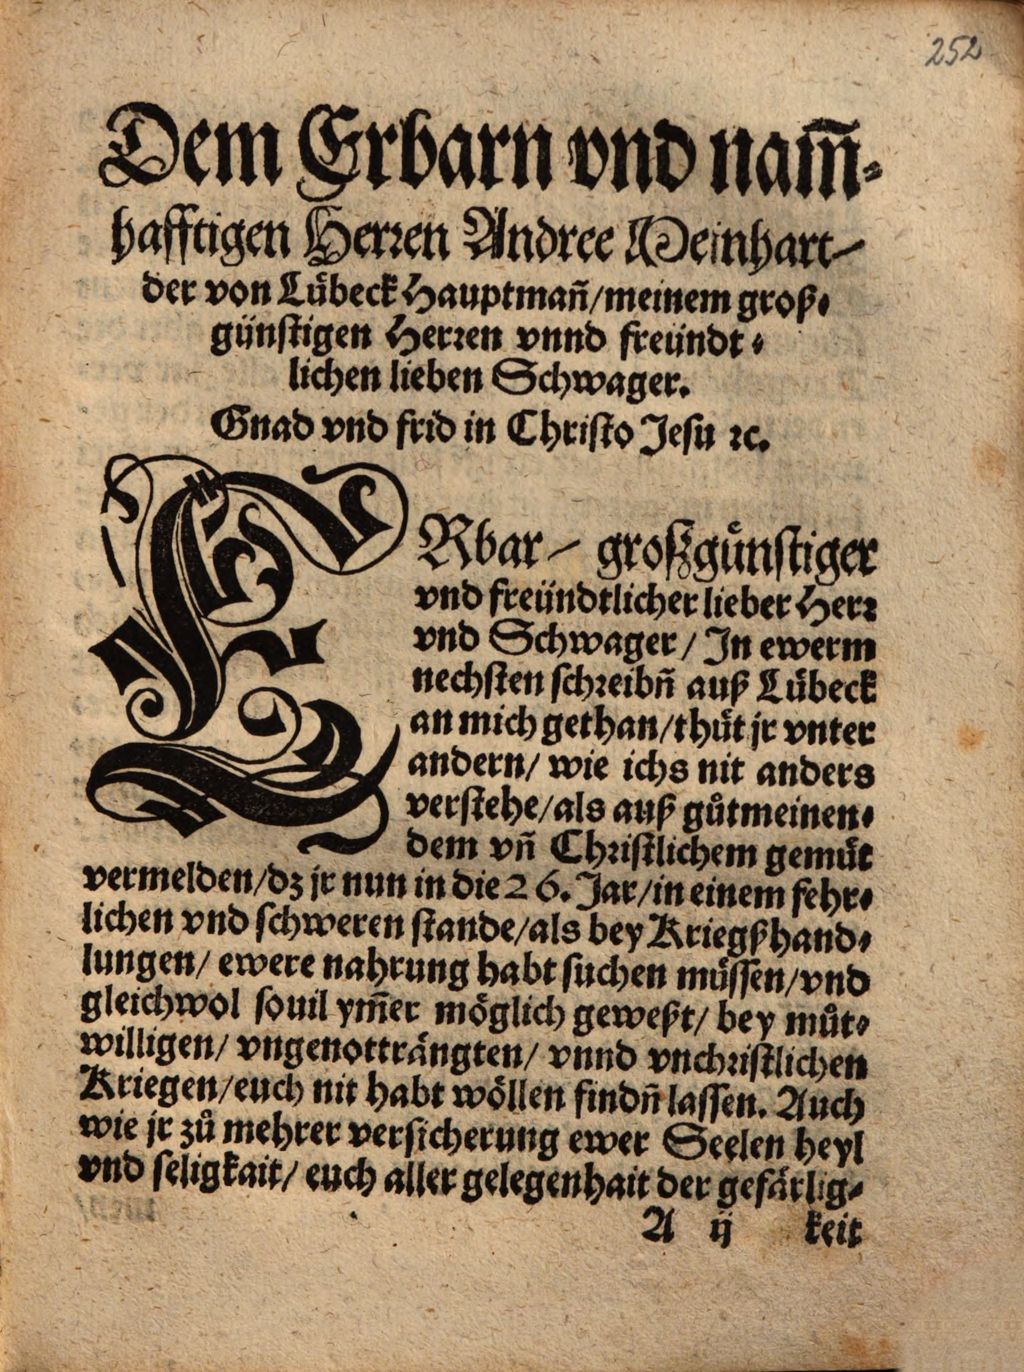 252
Dem Erbarn vnd nam̃⸗
hafftigen Herren Andree Meinhart⸗
der von Lübeck Hauptmañ/meinem groß⸗
günstigen Herren vnnd freündt⸗
lichen lieben Schwager.
Gnad vnd frid in Christo Jesu ꝛc.
ERbar⸗ großgünstiger
vnd freündtlicher lieber Herr
vnd Schwager/ In ewerm
nechsten schreibñ auß Lübeck
an mich gethan/thůt jr vnter
andern/ wie ichs nit anders
verstehe/als auß gůtmeinen⸗
dem vñ Christlichem gemůt
vermelden/dz jr nun in die 26. Jar/in einem fehr⸗
lichen vnd schweren stande/als bey Kriegßhand⸗
lungen/ ewere nahrung habt suchen müssen/vnd
gleichwol souil ym̃er möglich geweßt/ bey můt⸗
willigen/ vngenotträngten/ vnnd vnchristlichen
Kriegen/euch nit habt wöllen findñ lassen. Auch
wie jr zů mehrer versicherung ewer Seelen heyl
vnd seligkait/ euch aller gelegenhait der gefärlig⸗
A ij keit